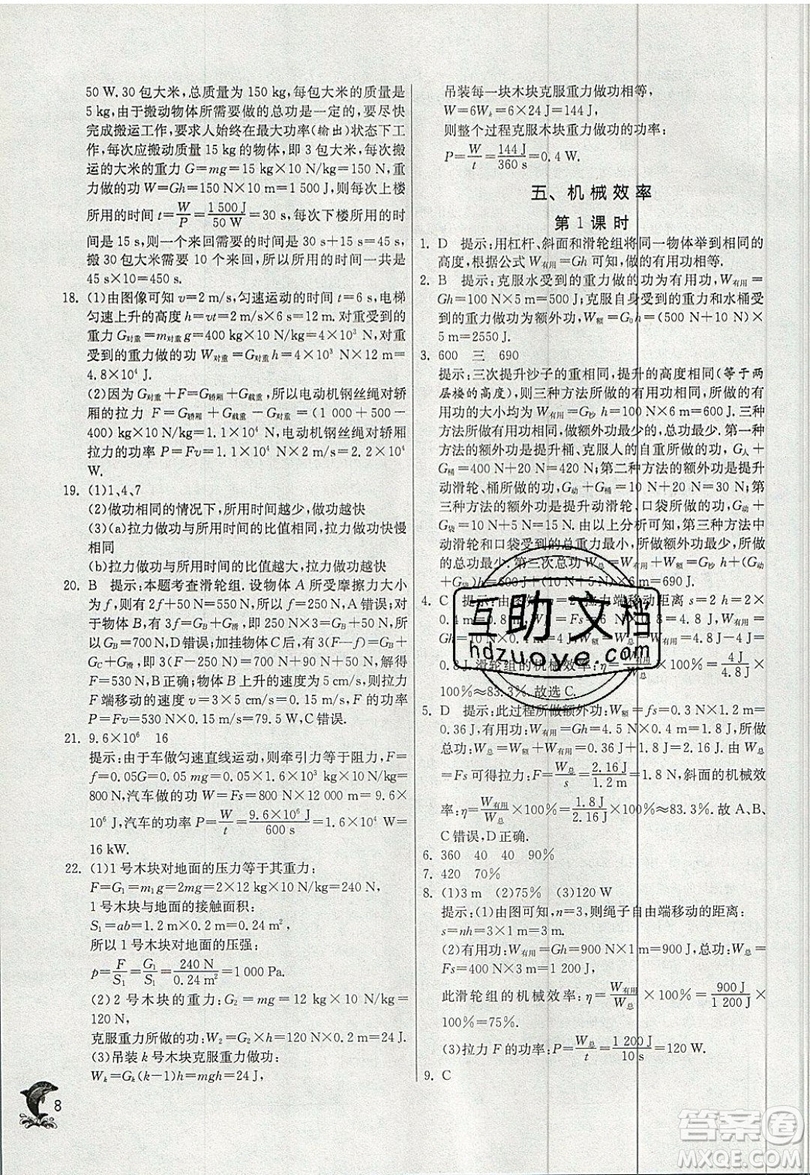 50 W. 30 包大米，总质量为 150 kg，每包大米的质量是
5 kg，由于搬动物体所需要做的总功是一定的，要尽快
完成搬运工作，要求人始终在最大功率（输出）状态下工
作，每次应搬动质量 15 kg 的物体，即 3 包大米，每次搬
运的大米的重力 G＝mg＝15 kg×10 N/kg＝150 N，克服
重力做的功 W＝Gh＝150 N×10 m＝1 500 J，则每次上楼
所用的时间 t＝W/P＝1 500 J/50 W＝30 s，每次下楼所用的时间
是 15 s，则每次往返所用的时间是 30 s＋15 s＝45 s，
搬 30 包大米需要 10 个来回，所以所用的时间一共是
45 s×10＝450 s.
18. (1)由图像可知 v＝2 m/s，匀速运动的时间 t＝6 s，电梯
匀速上升的高度 h＝vt＝2 m/s×6 s＝12 m. 对重受到的
重力 G对重＝m对重g＝400 kg×10 N/kg＝4 000 N，对
对重的重力做的功 W对重＝G对重h＝4 000 N×12 m＝
4.8×10⁴ J
(2)因为 G对重＋F＝G轿厢＋G载重，所以电动机钢丝绳对轿
厢的拉力 F＝G轿厢＋G载重－G对重＝(1 000＋500－
400) kg×10 N/kg＝1.1×10⁴ N，电动机钢丝绳对轿厢
拉力的功率 P＝Fv＝1.1×10⁴ N×2 m/s＝2.2×
10⁴ W.
19. (1)1、4、7
(2)做功相同的情况下，所用时间越少，做功越快
(3)(a)拉力做功与所用时间的比值相同，拉力做功快慢
相同
(b)拉力做功与所用时间的比值越大，拉力做功越快
20. B 提示：本题考查滑轮组. 设物体 A 所受摩擦力大小
为 f，则有 2f＋50 N＝2F，故 f＝450 N，A 错误；对
于物体 B，有 3F＝GB＋G滑，则 GB＝3F－G滑＝750 N，
所以 GB＝700 N，D 错误；加挂物体 C 后有 3(F－f)＝GB＋
GC＋G滑，即 3F－3×450 N＝700 N＋50 N＋50 N，解得
F＝530 N，B 正确. 物体 B 上升的速度为 5 cm/s，则拉力
F 端移动的速度为 v＝3×5 cm/s＝0.15 m/s，F 的功率
P＝Fv＝530 N×0.15 m/s＝79.5 W，C 错误.
21. 9.6×10⁶ 16
提示：由于车做匀速直线运动，则牵引力与阻力，F＝
f＝0.05G＝0.05mg＝0.05×1.6×10³ kg×10 N/kg＝
800 N，汽车做的功 W＝Fs＝800 N×12 000 m＝9.6×
10⁶ J，汽车的功率 P＝W/t＝9.6×10⁶ J/600 s＝1.6×10⁴ W＝
16 kW.
22. (1)1 号木块对地面的压力等于其重力：
F＝G₁＝m₁g＝2mg＝2×12 kg×10 N/kg＝240 N，
1 号木块与地面的接触面积：
S₁＝ab＝1.2 m×0.2 m＝0.24 m²，
所以 1 号木块对地面的压强：
p＝F/S₁＝G₁/S₁＝240 N/0.24 m²＝1 000 Pa.
(2) 2 号木块的重力：G₂＝mg＝12 kg×10 N/kg＝
120 N，
克服重力所做的功：W₂＝G₂h＝120 N×0.2 m＝24 J.
(3)吊装 k 号木块克服重力做功：
Wk＝Gk(k－1)h＝mgh＝24 J，
8
吊装每一块木块克服重力做功相等，
W＝6Wk＝6×24 J＝144 J，
则整个过程克服木块重力做功的功率：
P＝W/t＝144 J/360 s＝0.4 W.
五、机械效率
第 1 课时
1. D 提示：用杠杆、斜面和滑轮组将同一物体举到相同的
高度，根据公式 W有用＝Gh 可知，做的有用功相等.
2. B 提示：克服水受到的重力做功为有用功，W有用＝Gh＝
100 N×5 m＝500 J；克服自身受到的重力和水桶受到
的重力做功为额外功，W额＝G₀h＝(500 N＋10 N)
×5 m＝2550 J.
3. 600 三 690
提示：三次提升沙子的重相同，升高高度相同（等于两
层楼的高度），则三种方法所做的有用功相同，所做的有
用功的大小均为 W有用＝G沙h＝100 N×6 m＝600 J. 三种
方法所做额外功最少的，总功最少. 第一种
方法所做的额外功是提升桶、人所做的功，G人＋
G桶＝400 N＋20 N＝420 N；第二种方法的额外功是提升
动滑轮、桶所做的功，G动＋G桶＝10 N＋20 N＝30 N；第三
种方法的额外功是提升动滑轮、口袋所做的功，G动＋
G袋＝10 N＋5 N＝15 N. 由以上分析可知，第三次提升
动滑轮和口袋受到的重力最小，所做的额外功最少，总功
最少. 第三次总功 W总＝
4. C 提示：
滑轮组的机械效率：η＝
≈83.3%. 故选 C.
5. D 提示：此过程所做额外功：W额＝fs＝0.3 N×1.2 m＝
0.36 J，所做有用功：W有用＝Gh＝4.5 N×0.4 m＝1.8 J，所做
总功：W总＝W有用＋W额＝1.8 J＋0.36 J＝2.16 J，由 W总
＝Fs 可得拉力：F＝W总/s＝2.16 J/1.2 m＝1.8 N，斜面的机械效
率：η＝W有用/W总×100%＝1.8 J/2.16 J×100%≈83.3%. 故 A、B、
C 错误，D 正确.
6. 360 40 40 90%
7. 420 70%
8. (1)3 m (2)75% (3)120 W
提示：(1)由图可知，n＝3，则绳子自由端移动的距离：
s＝nh＝3×1 m＝3 m.
(2)有用功：W有用＝Gh＝900 N×1 m＝900 J，总功：W总＝
Fs＝400 N×3 m＝1 200 J，
此滑轮组的机械效率：η＝W有用/W总×100%＝900 J/1 200 J×
100%＝75%.
(3)拉力 F 的功率：P＝W总/t＝1 200 J/10 s＝120 W.
9. C
互助文档
hdzuoye.com
答案圈
MXQE.COM